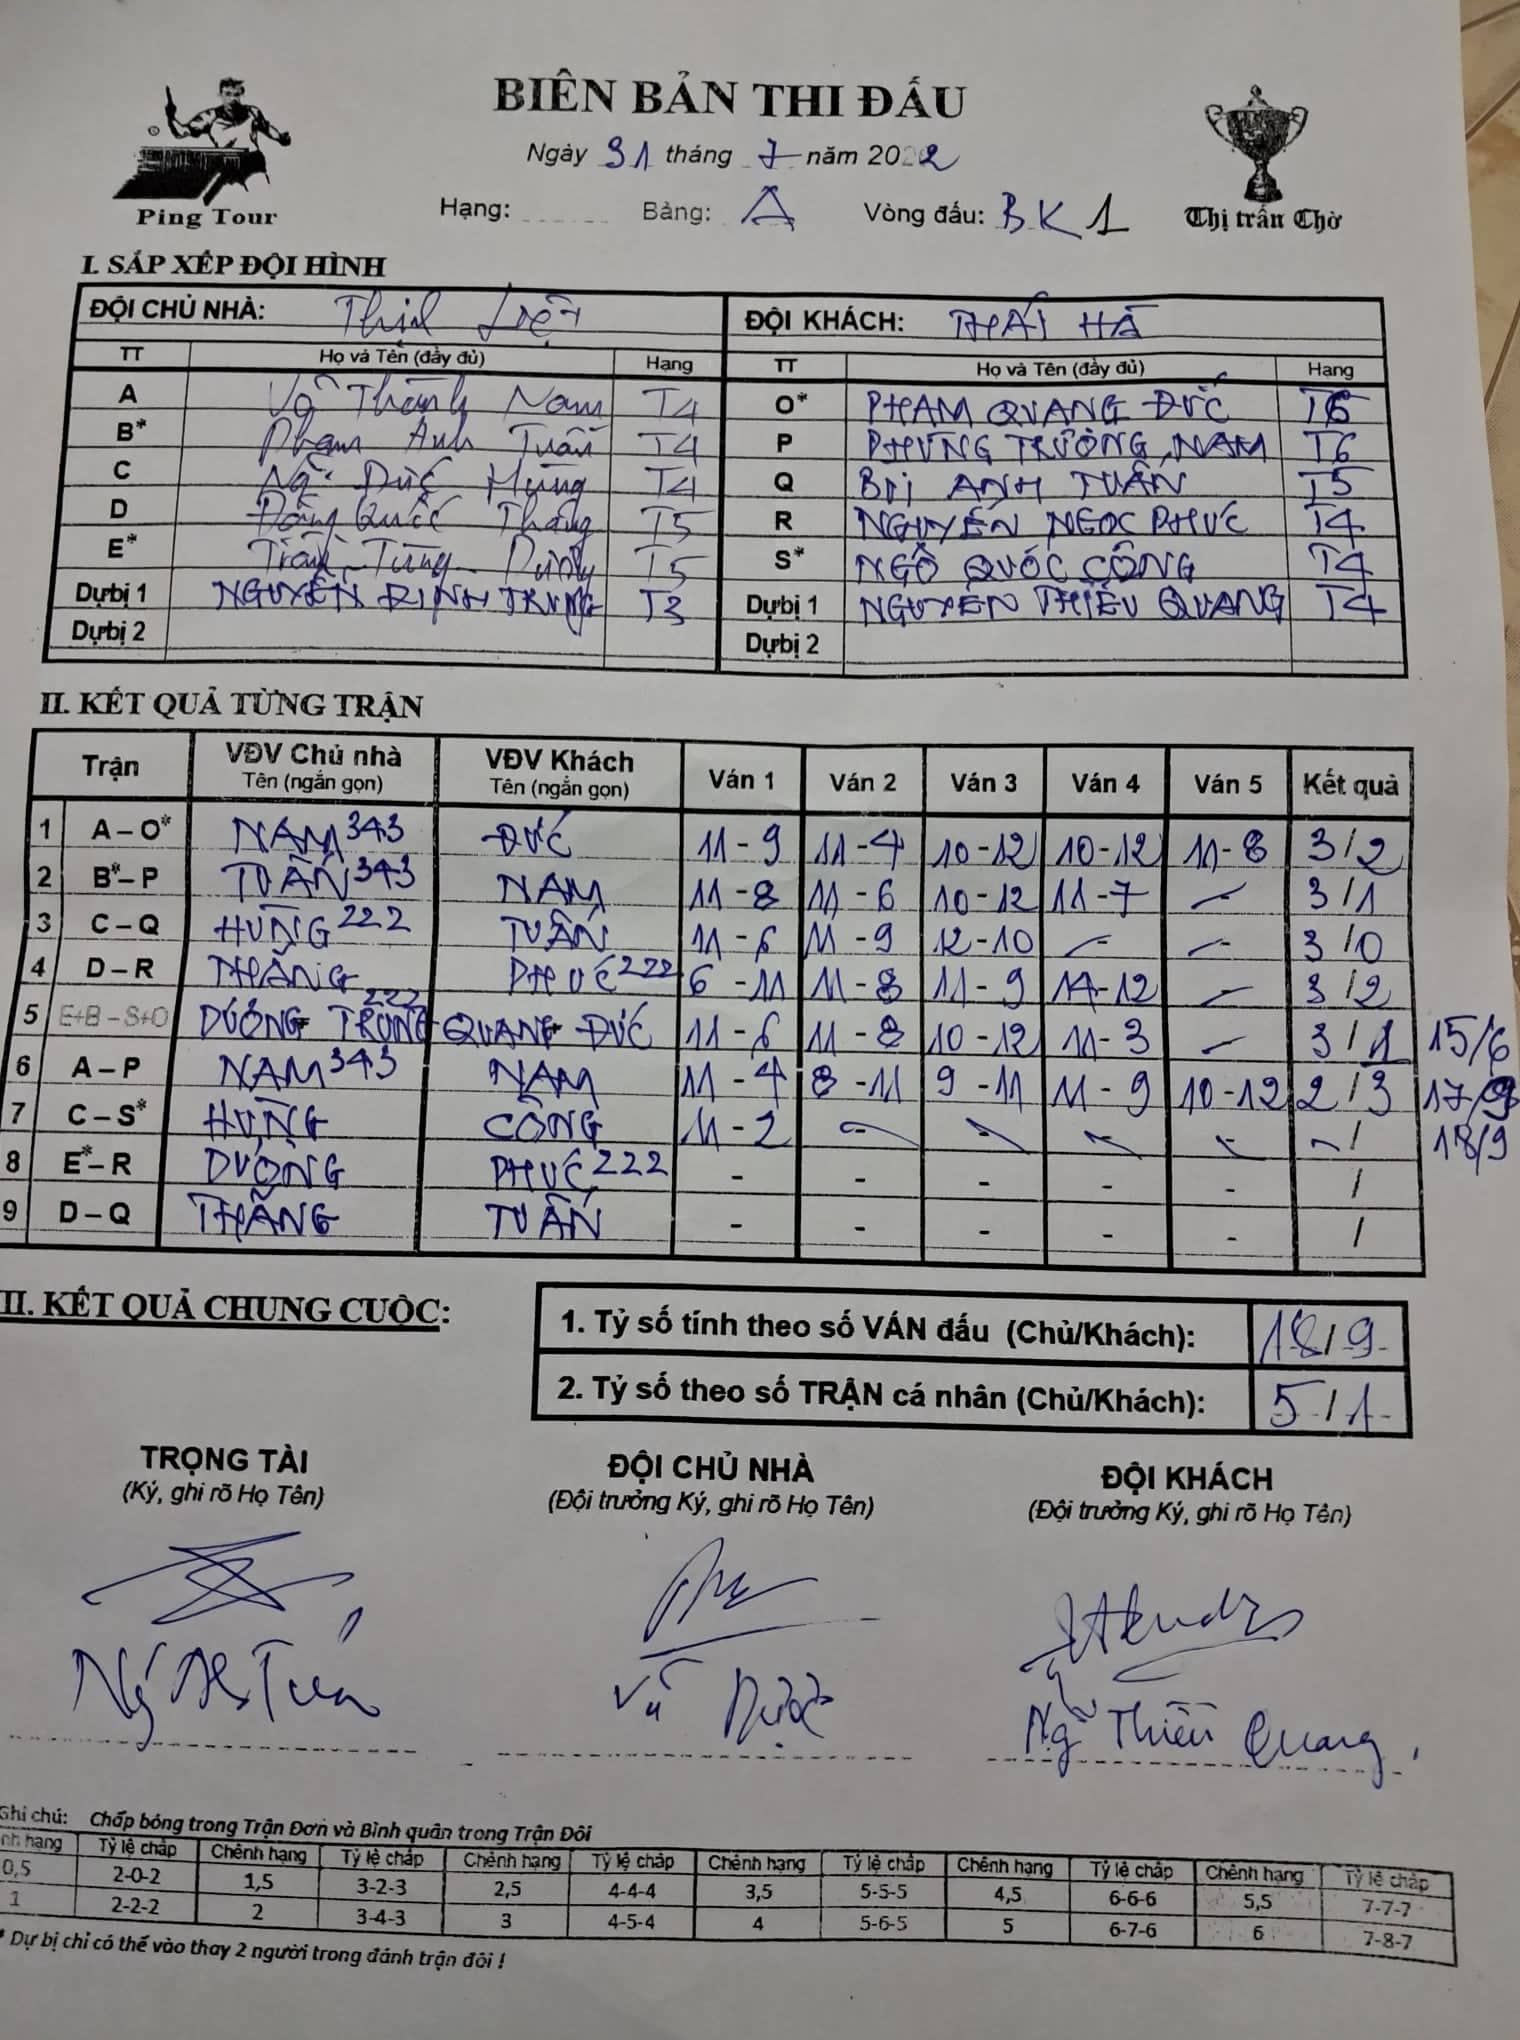 BIÊN BẢN THI ĐẤU
Ngày 31 tháng 7 năm 2022
Hạng: Bảng: A Vòng đấu: BK1
Ping Tour
Thị trấn Chờ
I. SẮP XẾP ĐỘI HÌNH
ĐỘI CHỦ NHÀ: Thịnh Liệt ĐỘI KHÁCH: THÁI HÀ
TT Họ và Tên (đầy đủ) Hạng TT Họ và Tên (đầy đủ) Hạng
A Võ Thành Nam T4 O* PHẠM QUANG ĐỨC T6
B* Phạm Anh Tuấn T4 P PHÙNG TRƯỜNG NAM T6
C Ngô Đức Hùng T4 Q BÙI ANH TUẤN T5
D Đặng Quốc Thắng T5 R NGUYỄN NGỌC PHÚC T4
E* Trần Tùng Dương T5 S* NGÔ QUỐC CÔNG T4
Dự bị 1 NGUYỄN ĐÌNH TRUNG T3 Dự bị 1 NGUYỄN THIỀU QUANG T4
Dự bị 2 Dự bị 2
II. KẾT QUẢ TỪNG TRẬN
Trận VĐV Chủ nhà Tên (ngắn gọn) VĐV Khách Tên (ngắn gọn) Ván 1 Ván 2 Ván 3 Ván 4 Ván 5 Kết quả
1 A – O* NAM 343 ĐỨC 11 - 9 11 - 4 10 - 12 10 - 12 11 - 8 3 / 2
2 B* – P TUẤN 343 NAM 11 - 8 11 - 6 10 - 12 11 - 7 - 3 / 1
3 C – Q HÙNG 222 TUẤN 11 - 6 11 - 9 12 - 10 - - 3 / 0
4 D – R THẮNG PHÚC 222 6 - 11 11 - 8 11 - 9 14 - 12 - 3 / 2
5 E+B – S+O DƯƠNG TRUNG 222 QUANG ĐỨC 11 - 6 11 - 8 10 - 12 11 - 3 - 3 / 1 15/6
6 A – P NAM 343 NAM 11 - 4 8 - 11 9 - 11 11 - 9 10 - 12 2 / 3 17/9
7 C – S* HÙNG CÔNG 11 - 2 - - - - / 18/9
8 E* – R DƯƠNG PHÚC 222 - - - - - /
9 D – Q THẮNG TUẤN - - - - - /
II. KẾT QUẢ CHUNG CUỘC:
1. Tỷ số tính theo số VÁN đấu (Chủ/Khách): 18 / 9
2. Tỷ số theo số TRẬN cá nhân (Chủ/Khách): 5 / 1
TRỌNG TÀI ĐỘI CHỦ NHÀ ĐỘI KHÁCH
(Ký, ghi rõ Họ Tên) (Đội trưởng Ký, ghi rõ Họ Tên) (Đội trưởng Ký, ghi rõ Họ Tên)
Vũ Ng Thiều Quang
Ghi chú: Chấp bóng trong Trận Đơn và Bình quân trong Trận Đôi
nh hạng Tỷ lệ chấp Chênh hạng Tỷ lệ chấp Chênh hạng Tỷ lệ chấp Chênh hạng Tỷ lệ chấp Chênh hạng Tỷ lệ chấp Chênh hạng Tỷ lệ chấp
0,5 2-0-2 1,5 3-2-3 2,5 4-4-4 3,5 5-5-5 4,5 6-6-6 5,5 7-7-7
1 2-2-2 2 3-4-3 3 4-5-4 4 5-6-5 5 6-7-6 6 7-8-7
* Dự bị chỉ có thể vào thay 2 người trong đánh trận đôi !